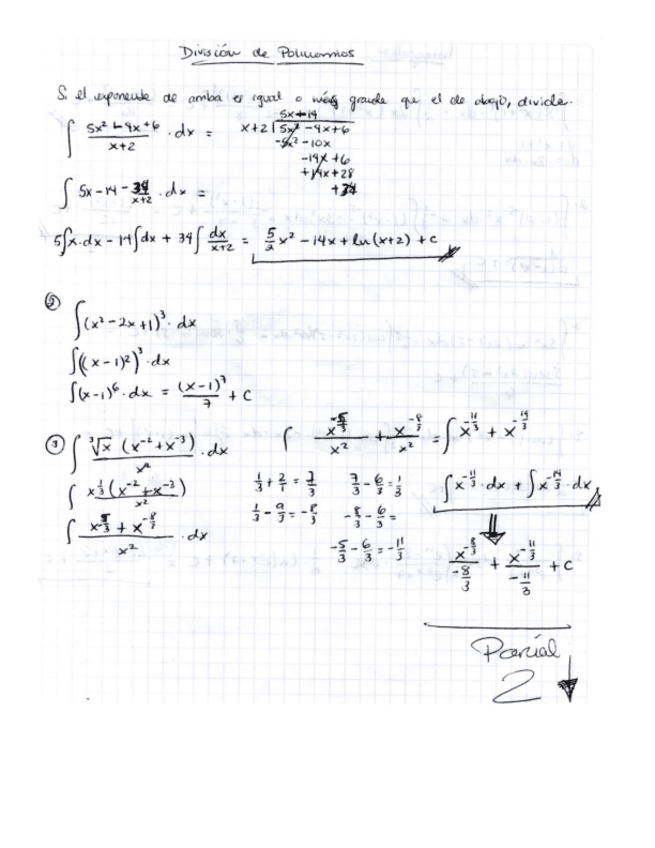 División de Polinomios
Si el exponente de arriba es igual o más grande que el de abajo, divide.
∫ (5x² - 4x + 6)/(x+2) · dx =
5x - 14
x+2 | 5x² - 4x + 6
-5x² - 10x
-14x + 6
+14x + 28
+34
∫ 5x - 14 - 34/(x+2) · dx =
5∫x·dx - 14∫dx + 34∫ dx/(x+2) = 5/2 x² - 14x + ln(x+2) + C
②
∫(x² - 2x + 1)³ · dx
∫((x-1)²)³ · dx
∫(x-1)⁶ · dx = (x-1)⁷/7 + C
∫ ∛x (x⁻² + x⁻³)/x² · dx
∫ x^(1/3) (x⁻² + x⁻³)/x²
∫ (x^(-5/3) + x^(-8/3))/x² · dx
∫ x^(-5/3)/x² + x^(-8/3)/x² = ∫ x^(-11/3) + x^(-14/3)
1/3 + 2/1 = 7/3
7/3 - 6/3 = 1/3
1/3 - 9/3 = -8/3
-8/3 - 6/3 =
-5/3 - 6/3 = -11/3
∫ x^(-11/3) · dx + ∫ x^(-14/3) · dx
x^(-8/3)/(-8/3) + x^(-11/3)/(-11/3) + C
Parcial
2